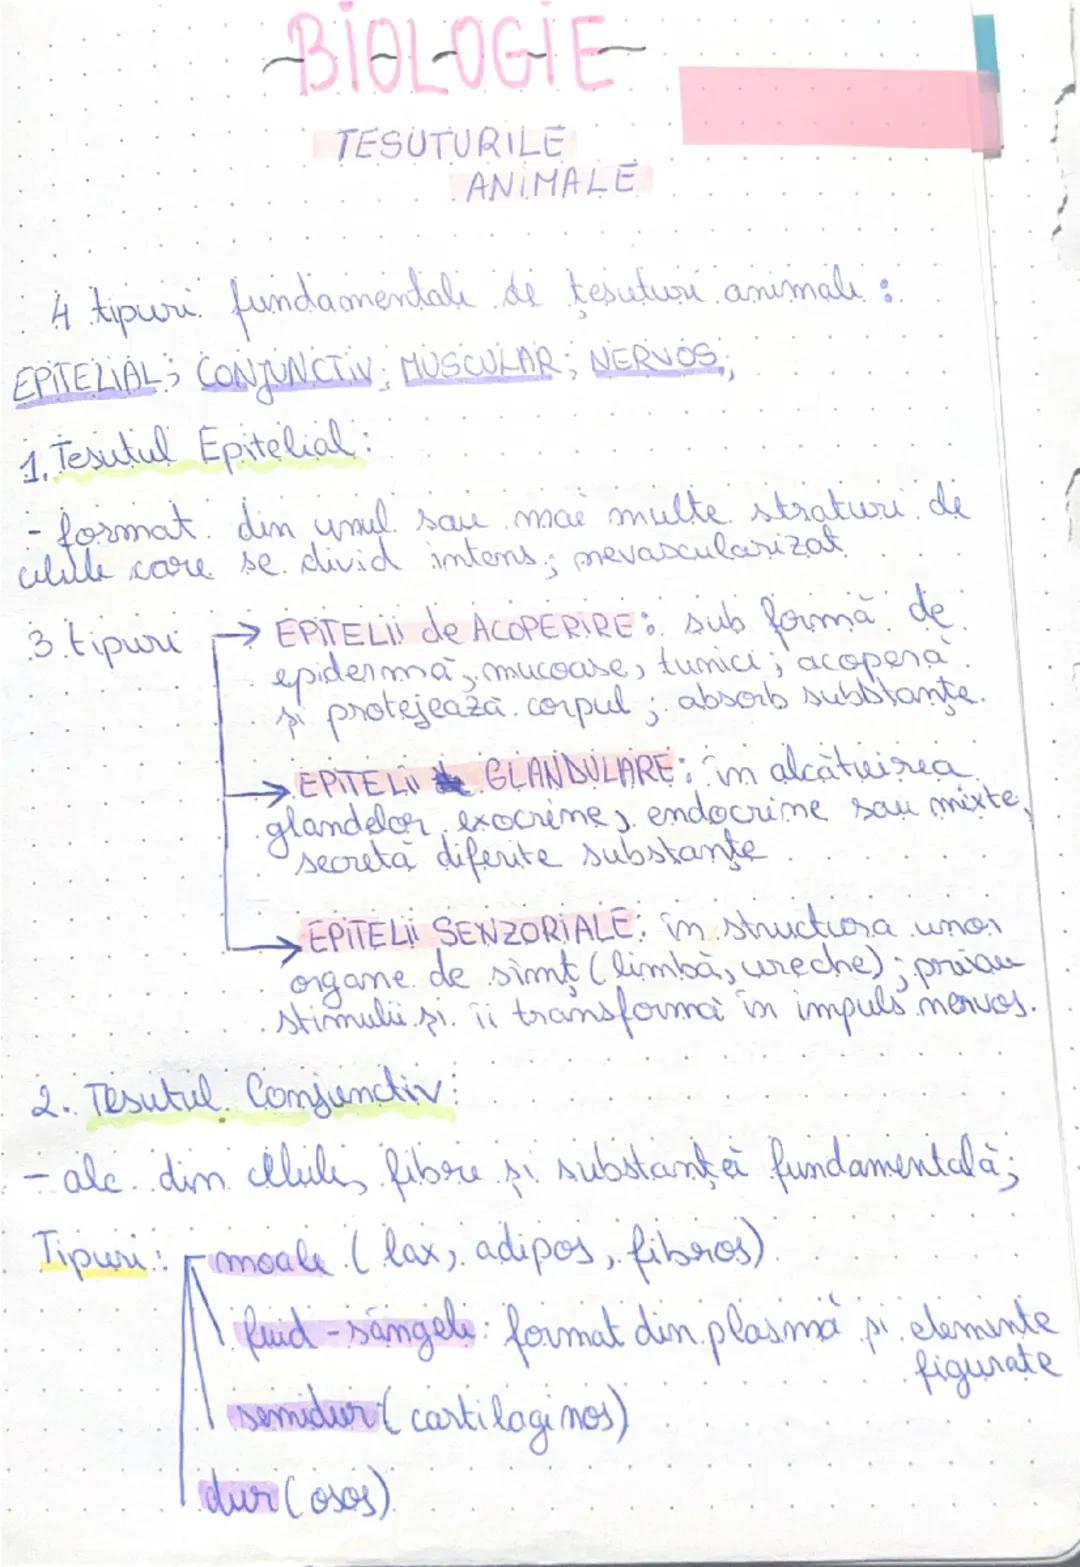 BIOLOGIE
TESUTURILE
ANIMALE
4 tipuri fundamentale de țesuturi animale :
EPITELIAL; CONJUNCTIV; MUSCULAR; NERVOS;
1. Tesutul Epitelial :
- format din unul sau mai multe straturi de
celule care se divid intens; nevascularizat
3 tipuri → EPITELII de ACOPERIRE: sub formă de
epidermă, mucoase, tunici; acoperă
și protejează corpul; absorb substanțe.
→ EPITELII GLANDULARE: în alcătuirea
glandelor exocrine, endocrine sau mixte,
secretă diferite substanțe
→ EPITELII SENZORIALE: în structura unor
organe de simț (limbă, ureche); preiau
stimulii și îi transformă în impuls nervos.
2. Tesutul Conjunctiv :
- alc. din celule, fibre și substanță fundamentală;
Tipuri : moale (lax, adipos, fibros)
fluid - sângele: format din plasmă și elemente
figurate
semidur (cartilaginos)
dur (osos)